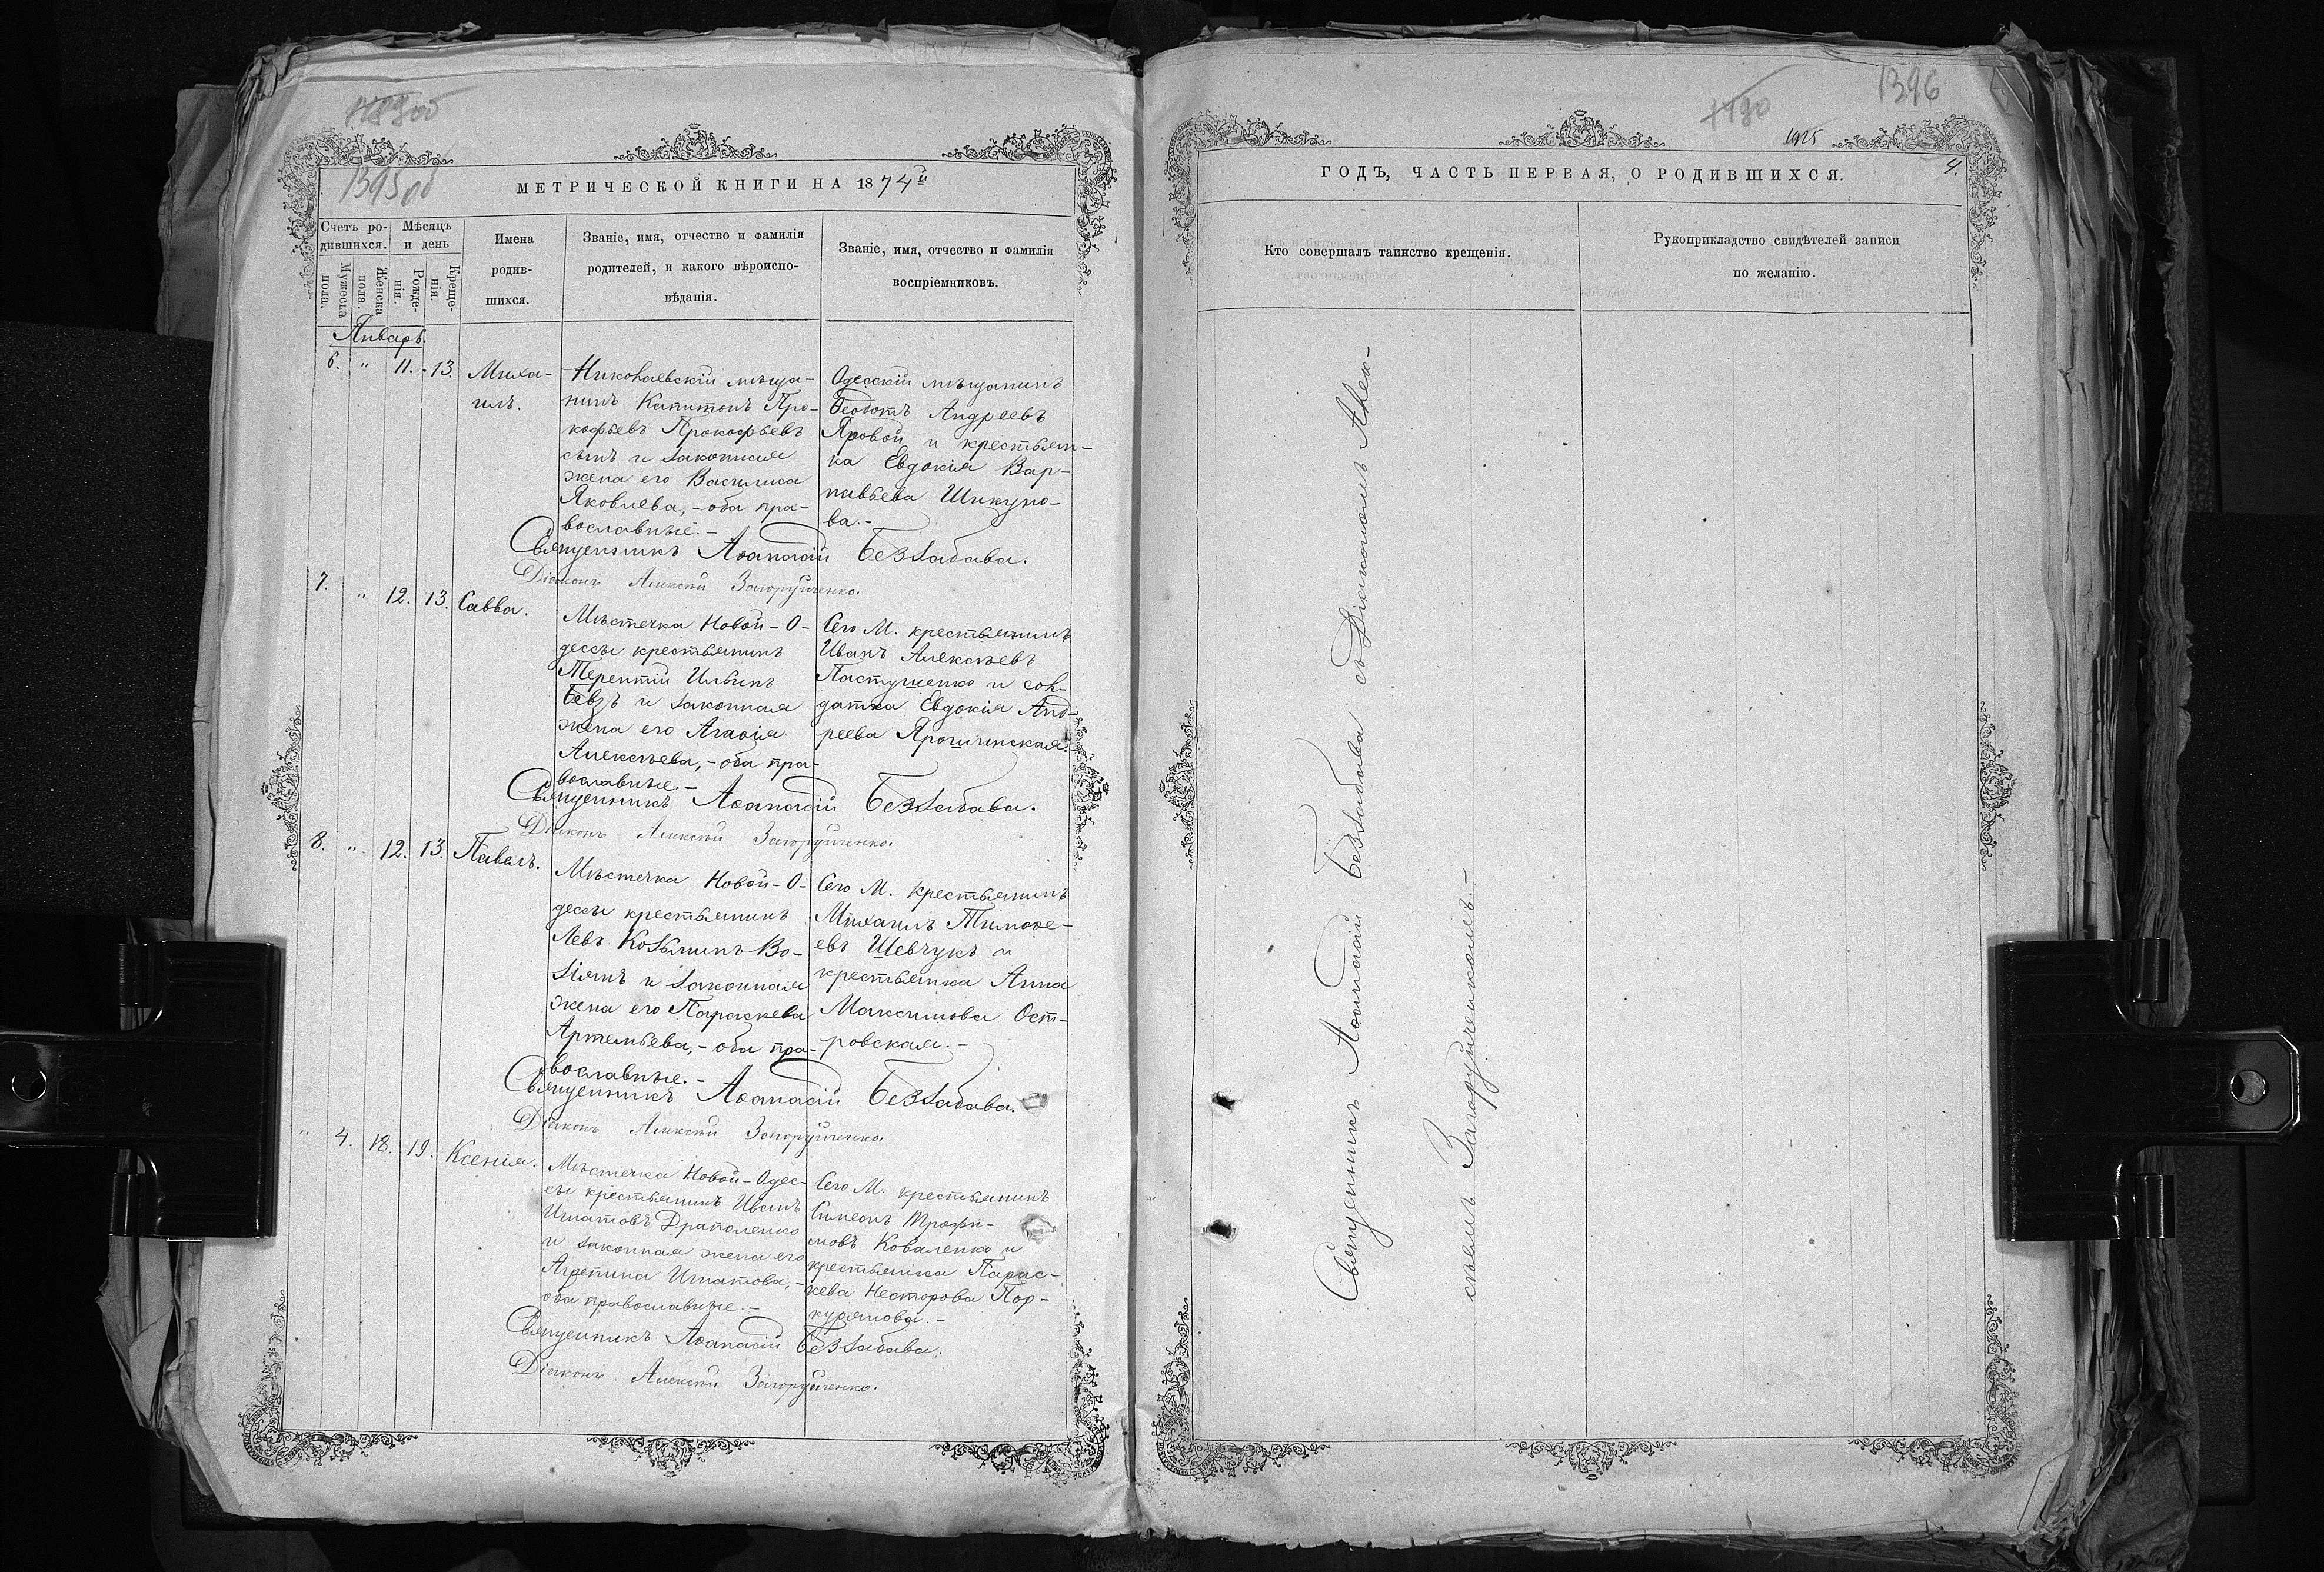 1395об
МЕТРИЧЕСКОЙ КНИГИ НА 1874й
Счетъ ро-
дившихся.
Мѣсяцъ
и день
Мужеска
пола.
Женска
пола.
Рожде-
нія.
Креще-
нія.
Имена
родив-
шихся.
Званіе, имя, отчество и фамилія
родителей, и какого вѣроиспо-
вѣданія.
Званіе, имя, отчество и фамилія
воспріемниковъ.
Январь.
6. " 11. 13.
Миха-
илъ.
Николаевскій мѣща-
нинъ Капитонъ Про-
кофьевъ Прокофьевъ
сынъ и законная
жена его Василиса
Яковлева, - оба пра-
вославные. -
Одесскій мѣщанинъ
Ѳеодотъ Андреевъ
Яровой и крестьян-
ка Евдокія Вар-
навьева Шикуно-
ва. -
Священникъ Аѳанасій Беззабава.
Діаконъ Алексѣй Загоруйченко.
7. " 12. 13. Савва.
Мѣстечка Новой-О-
дессы крестьянинъ
Терентій Ильинъ
Бевзъ и законная
жена его Агаѳія
Алексѣева, - оба пра-
вославные. -
Сего М. крестьянинъ
Иванъ Алексѣевъ
Пастушенко и сол-
датка Евдокія Анд-
реева Ярошинская.
Священникъ Аѳанасій Беззабава.
Діаконъ Алексѣй Загоруйченко.
8. " 12. 13. Павелъ.
Мѣстечка Новой-О-
дессы крестьянинъ
Левъ Козьминъ Во-
зіянъ и законная
жена его Параскева
Артемьева, - оба пра-
вославные. -
Сего М. крестьянинъ
Михаилъ Тимоѳе-
евъ Шевчукъ и
крестьянка Анна
Максимова Ост-
ровская. -
Священникъ Аѳанасій Беззабава.
Діаконъ Алексѣй Загоруйченко
" 4. 18. 19. Ксенія.
Мѣстечка Новой-Одес-
сы крестьянинъ Иванъ
Игнатовъ Драполенко
и законная жена его
Агрепина Игнатова, -
оба православные. -
Сего М. крестьянинъ
Симеонъ Трофи-
мовъ Коваленко и
крестьянка Парас-
кева Несторова Пор-
курянова. -
Священникъ Аѳанасій Беззабава.
Діаконъ Алексѣй Загоруйченко.
1396
1490
1425
4.
ГОДЪ, ЧАСТЬ ПЕРВАЯ, О РОДИВШИХСЯ.
Кто совершалъ таинство крещенія.
Рукоприкладство свидѣтелей записи
по желанію.
Священникъ Аѳанасій Беззабава съ Діакономъ Алек-
сѣемъ Загоруйченкомъ. -